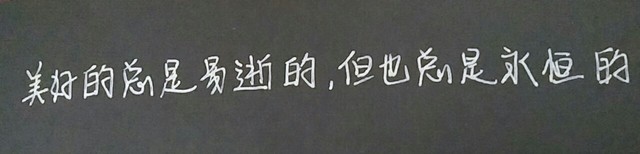 美好的总是易逝的,但也总是永恒的